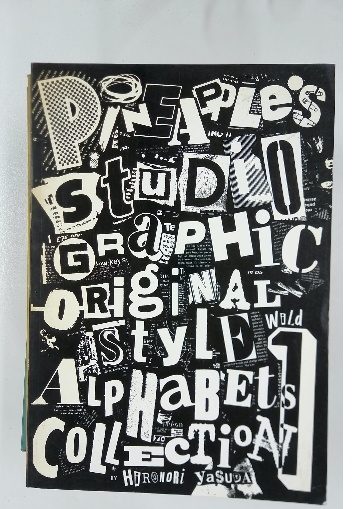 PiNEAPPLE's
StuDiO
GRaPHiC
ORiginAL
StyLE WORLD
ALPHaBEts 1
COLLECTiON
BY HIRONORI YaSUDA